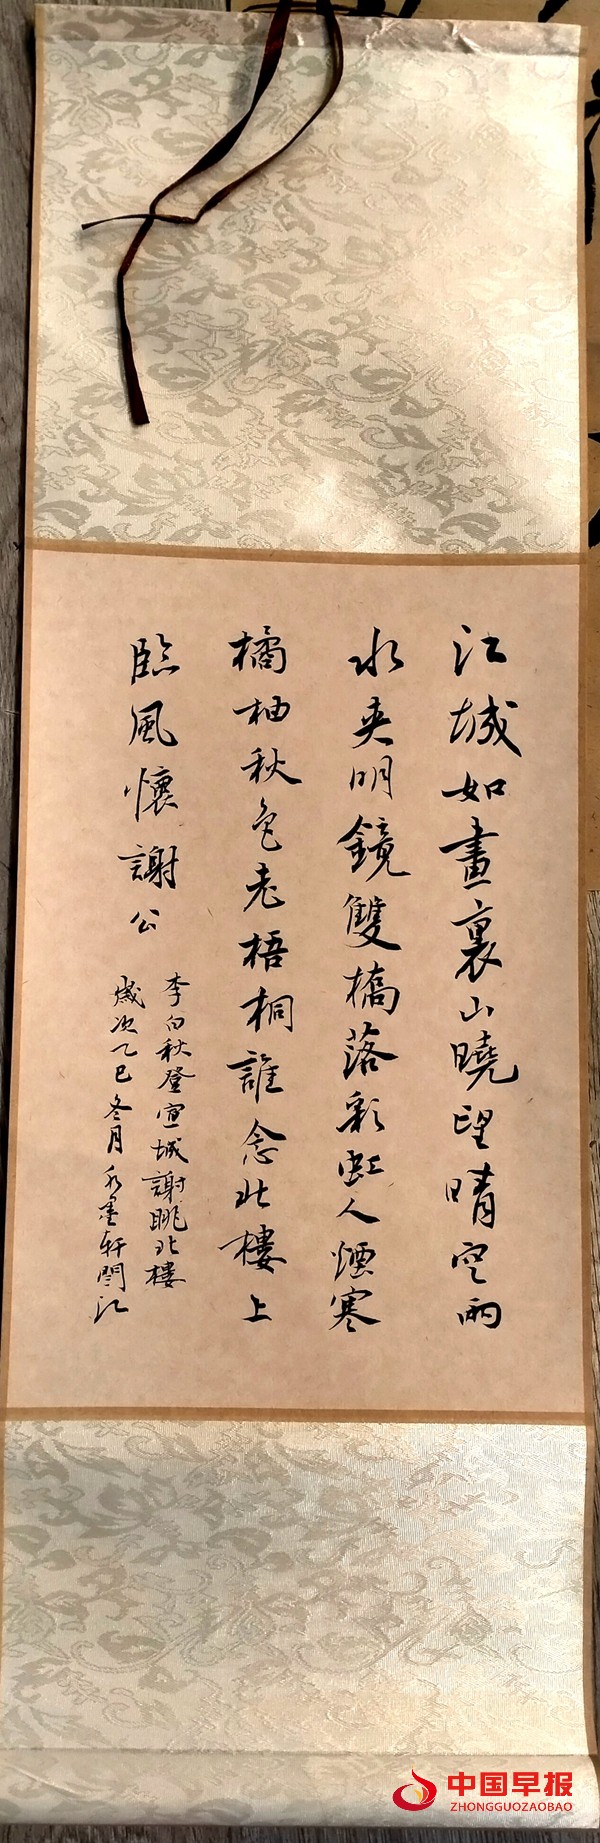 江城如畫裏山曉望晴空雨
水夾明鏡雙橋落彩虹人煙寒
橘柚秋色老梧桐誰念北樓上
臨風懷謝公
李白秋登宣城謝朓北樓
歲次乙巳冬月水墨軒閆江
中国早报
ZHONGGUOZAOBAO